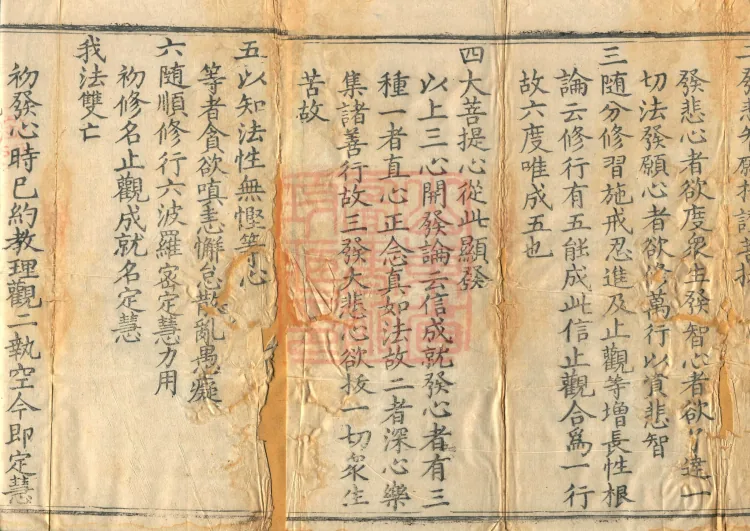 二發悲智願相說菩提
發悲心者欲度衆生發智心者欲了達一
切法發願心者欲修萬行以資悲智
三隨分修習施戒忍進及止觀等增長性根
論云修行有五能成此信止觀合爲一行
故六度唯成五也
四大菩提心從此顯發
以上三心開發論云信成就發心者有三
種一者直心正念真如法故二者深心樂
集諸善行故三發大悲心欲拔一切衆生
苦故
五以知法性無慳等心
等者貪欲嗔恚懈怠散亂愚癡
六隨順修行六波羅密定慧力用
初修名止觀成就名定慧
我法雙亡
初發心時已約教理觀二執空今即定慧